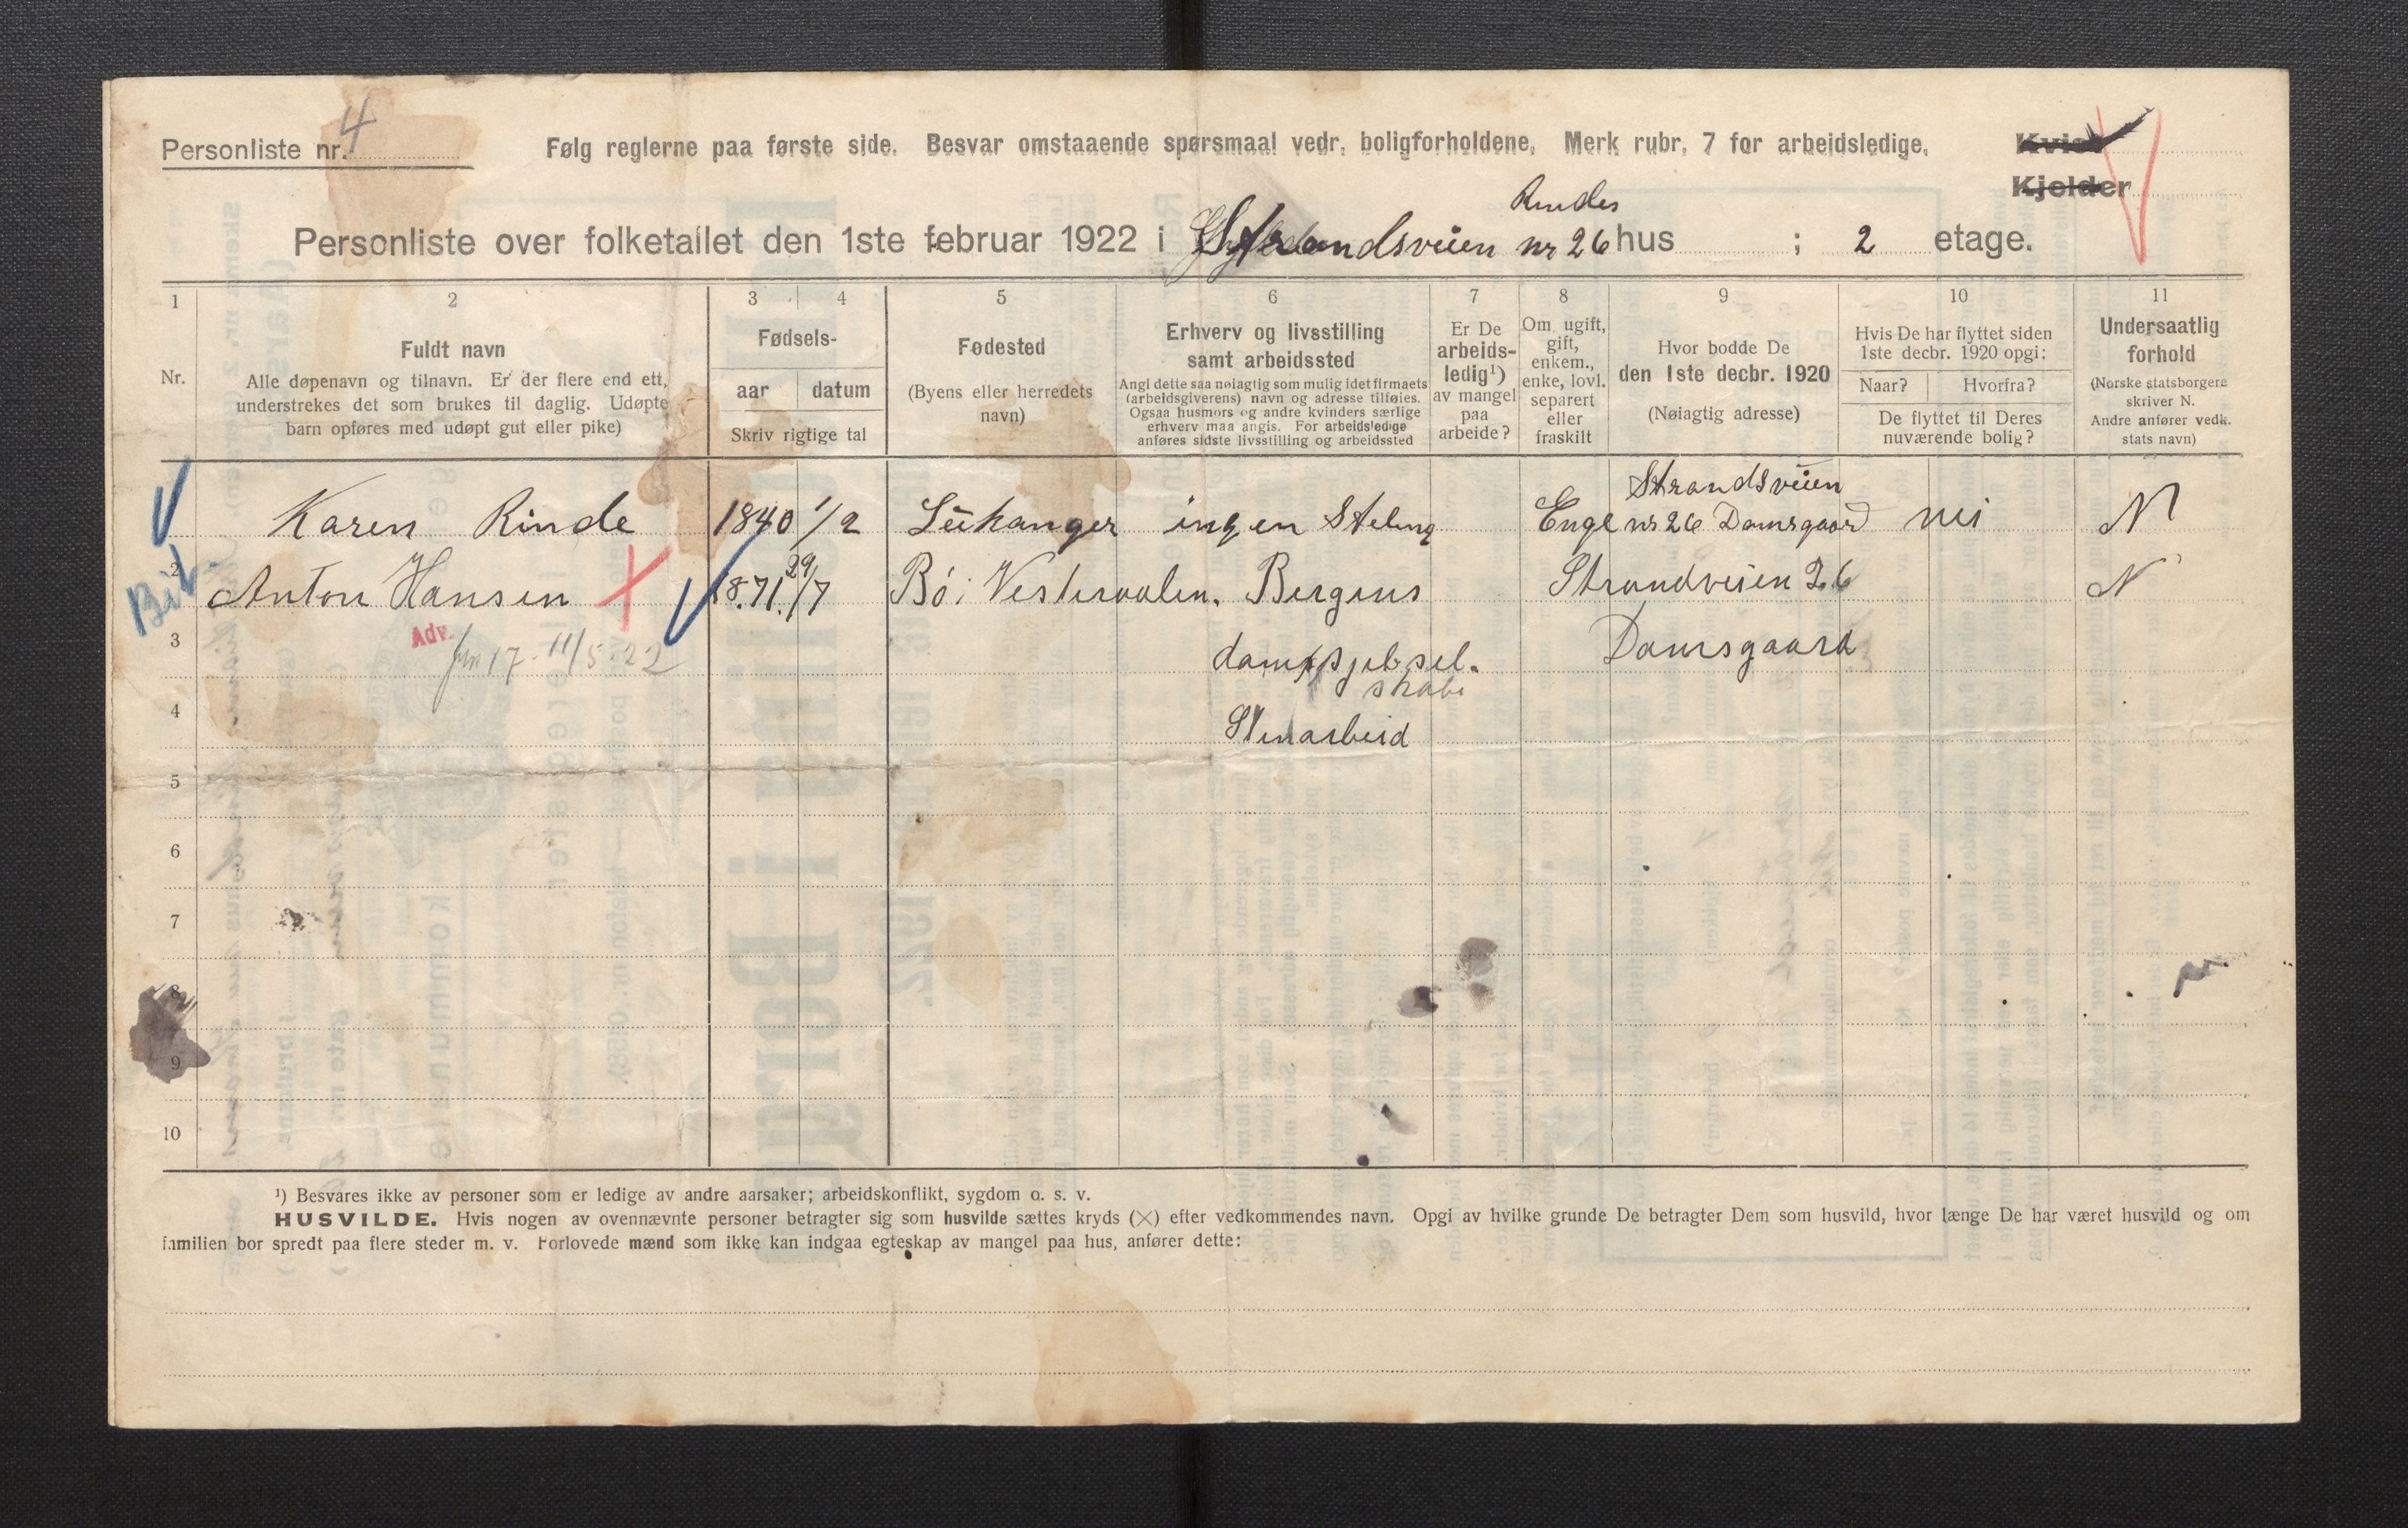 Personliste nr. 4
Følg reglerne paa første side. Besvar omstaaende spørsmaal vedr. boligforholdene. Merk rubr. 7 for arbeidsledige.
Kvist
Kjelder
Rindes
Personliste over folketallet den 1ste februar 1922 i Strandsveien nr 26 hus ; 2 etage.
1 2 3 4 5 6 7 8 9 10 11
Nr.
Fuldt navn
Alle døpenavn og tilnavn. Er der flere end ett,
understrekes det som brukes til daglig. Udøpte
barn opføres med udøpt gut eller pike)
Fødsels-
aar datum
Skriv rigtige tal
Fødested
(Byens eller herredets
navn)
Erhverv og livsstilling
samt arbeidssted
Angi dette saa nøiagtig som mulig idet firmaets
(arbeidsgiverens) navn og adresse tilføies.
Ogsaa husmors og andre kvinders særlige
erhverv maa angis. For arbeidsledige
anføres sidste livsstilling og arbeidssted
Er De
arbeids-
ledig¹)
av mangel
paa
arbeide?
Om ugift,
gift,
enkem.,
enke, lovl.
separert
eller
fraskilt
Hvor bodde De
den 1ste decbr. 1920
(Nøiagtig adresse)
Hvis De har flyttet siden
1ste decbr. 1920 opgi:
Naar? Hvorfra?
De flyttet til Deres
nuværende bolig?
Undersaatlig
forhold
(Norske statsborgere
skriver N.
Andre anfører vedk.
stats navn)
Strandsveien
Karen Rinde 1840 1/2 Leikanger ingen Steling Enge nr 26 Damsgaard nei N
2 Anton Hansen 1871. 29/7 Bö i Vesteraalen. Bergens Strandveien 26 N
Bit.
3 Adv. 17 - 11/5.22 dampsjibsel. Damsgaard
skabe
4 Stenarbeid
5
6
7
8
9
10
¹) Besvares ikke av personer som er ledige av andre aarsaker; arbeidskonflikt, sygdom o. s. v.
HUSVILDE. Hvis nogen av ovennævnte personer betragter sig som husvilde sættes kryds (×) efter vedkommendes navn. Opgi av hvilke grunde De betragter Dem som husvild, hvor længe De har været husvild og om
familien bor spredt paa flere steder m. v. Forlovede mænd som ikke kan indgaa egteskap av mangel paa hus, anfører dette: